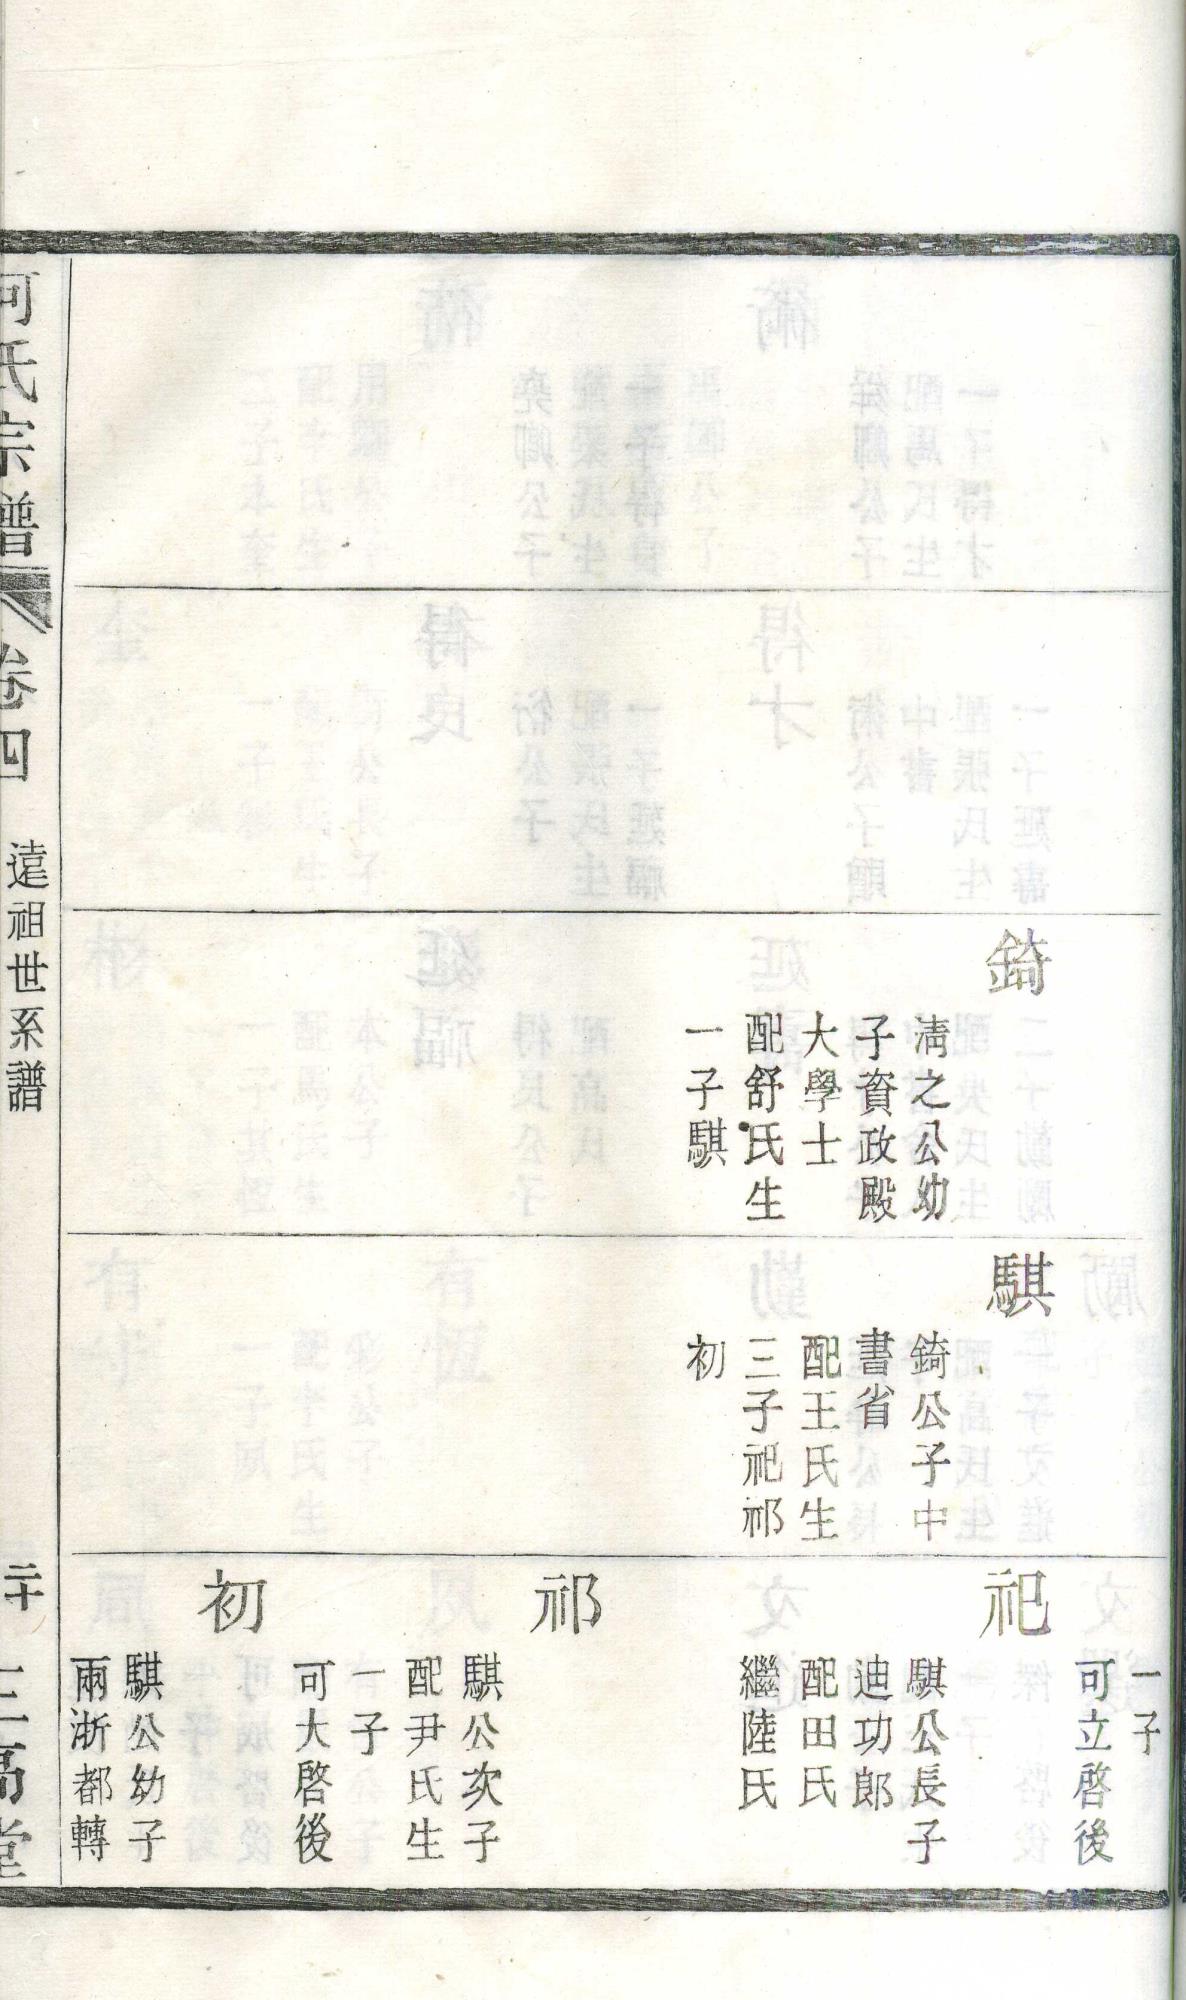 錡
淸之公幼
子資政殿
大學士
配舒氏生
一子騏
騏
錡公子中
書省
配王氏生
三子祀祁
初
一子
可立啓後
祀
騏公長子
迪功郎
配田氏
繼陸氏
祁
騏公次子
配尹氏生
一子
可大啓後
初
騏公幼子
兩浙都轉
何氏宗譜
卷四
遠祖世系譜
二十
三高堂